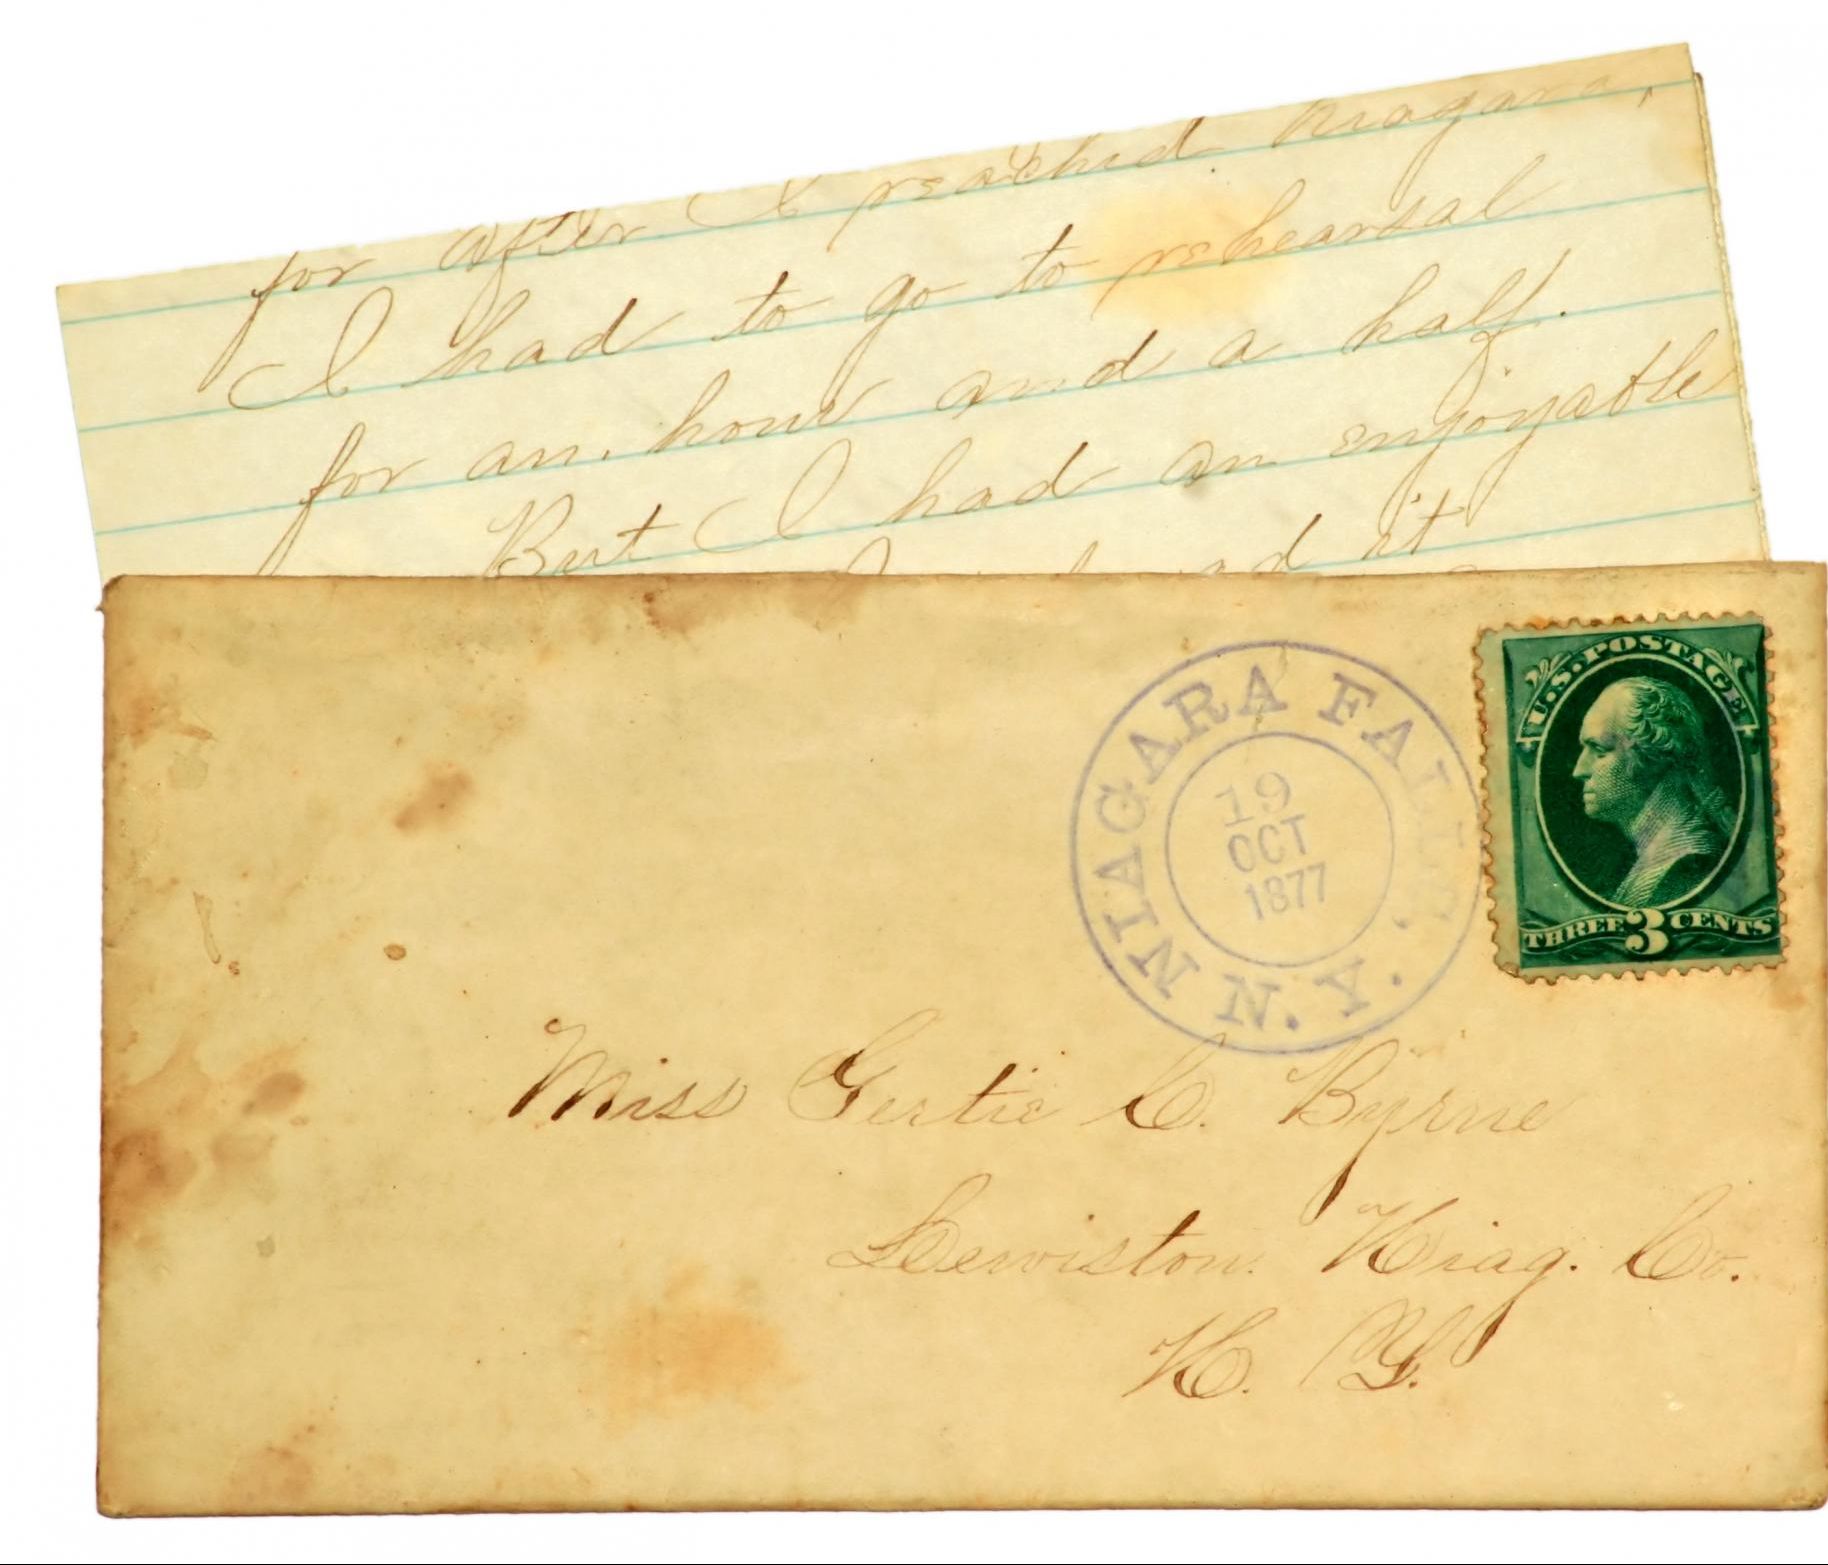 for after I reached Niagara,
I had to go to rehearsal
for an hour and a half.
But I had an enjoyable
it
NIAGARA FALLS, N.Y.
19
OCT
1877
U.S. POSTAGE
THREE 3 CENTS
Miss Gertie C. Byrne
Lewiston Niag. Co.
N. Y.